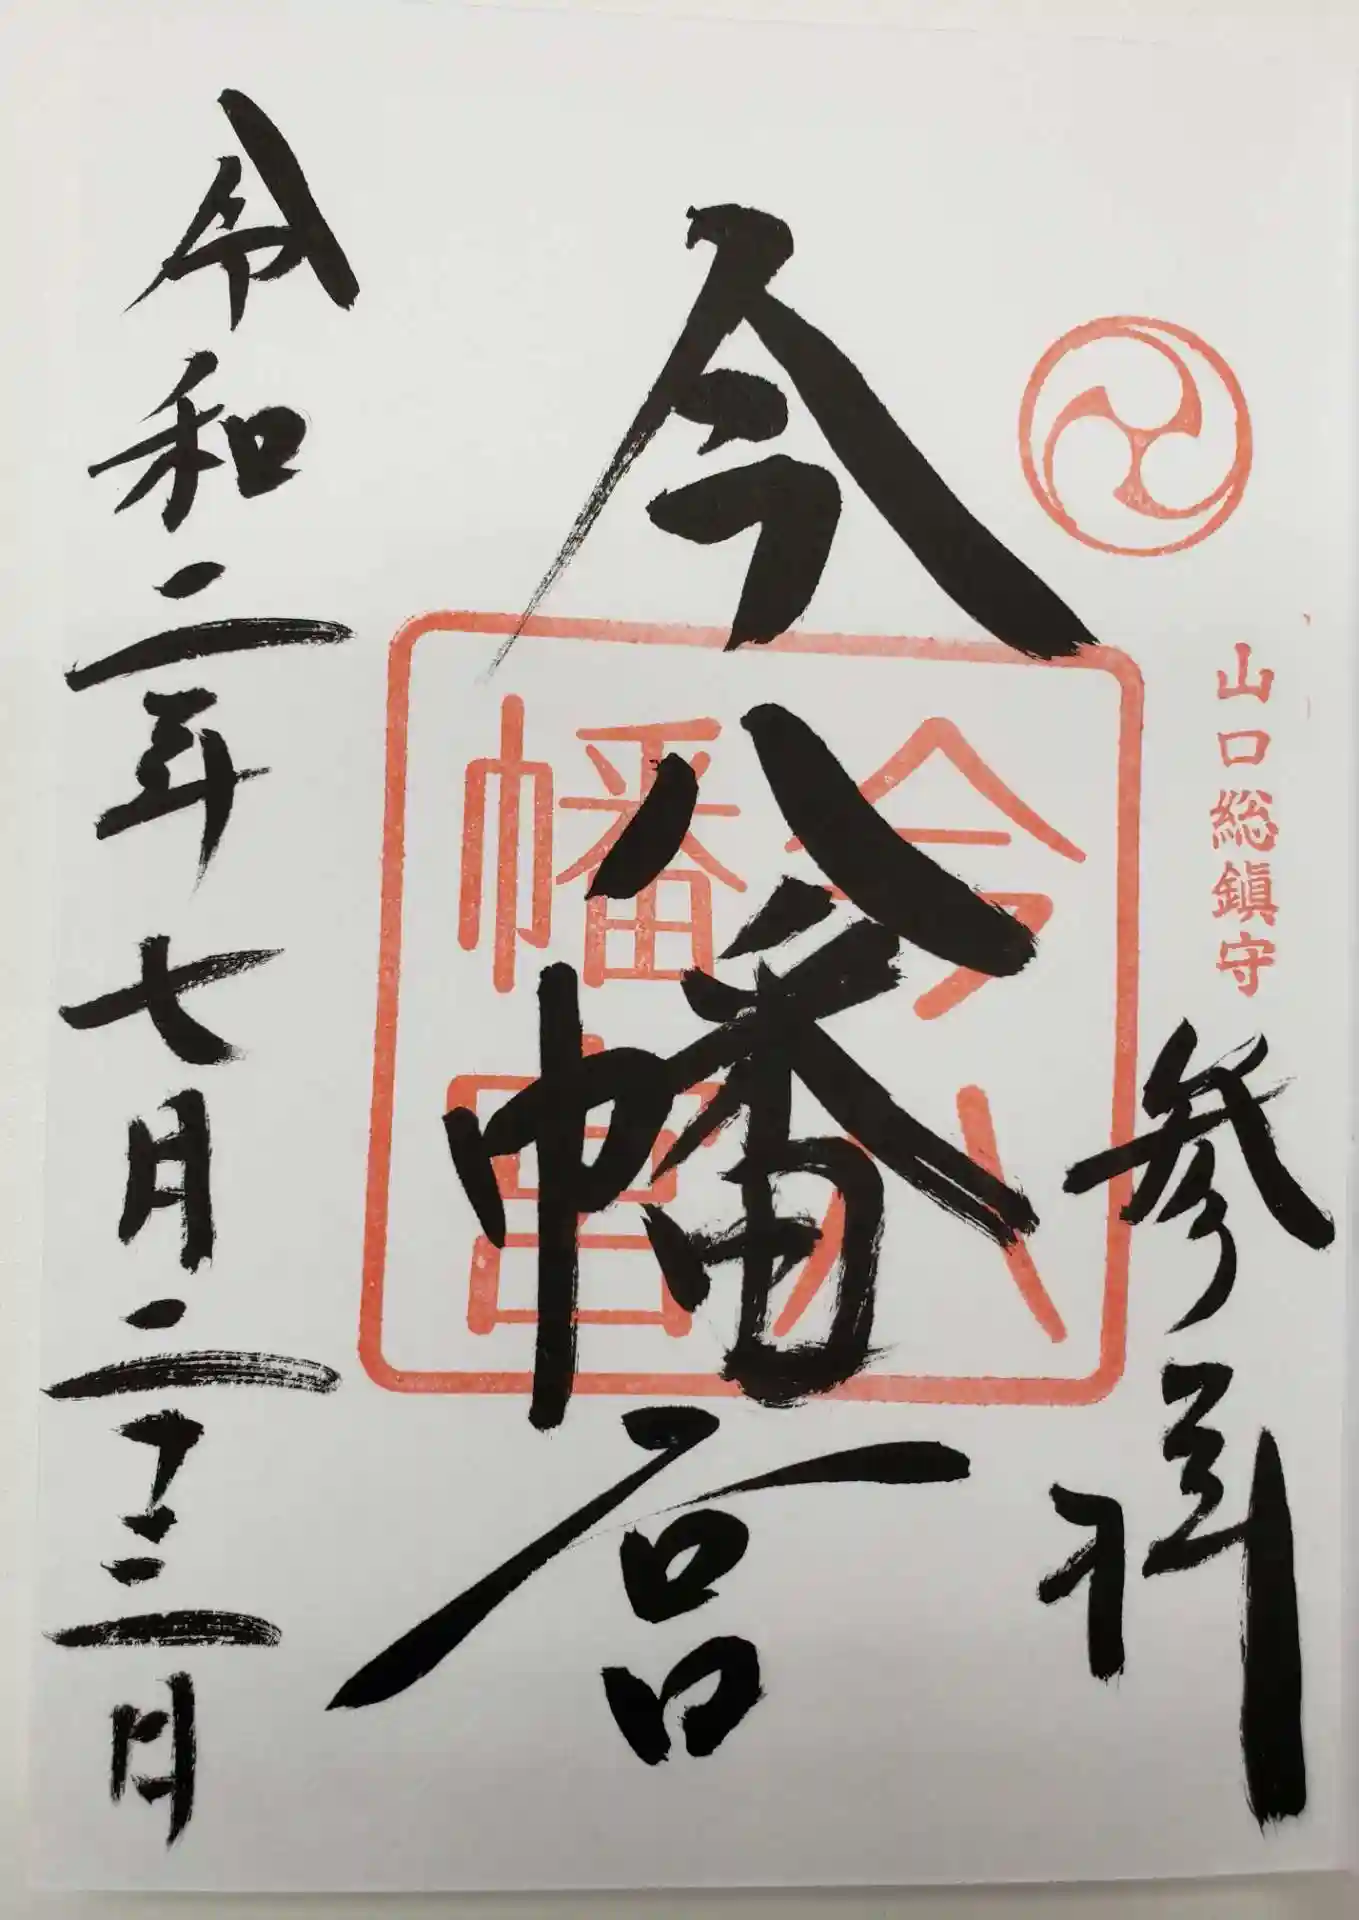 山口総鎮守
参拝
今八幡宮
今八
幡宮
令和二年七月二十三日